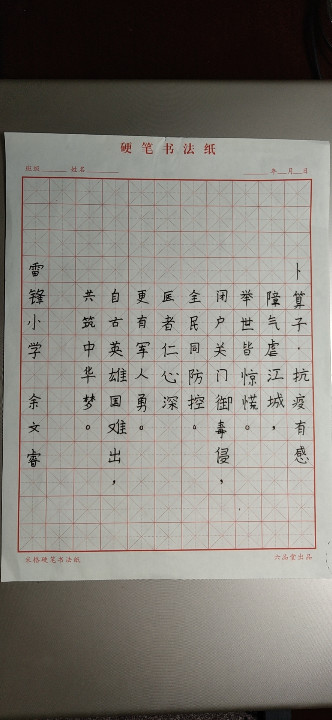 硬笔书法纸
班级 姓名 年 月 日
卜算子·抗疫有感
障气虐江城，
举世皆惊慌。
闭户关门御毒侵，
全民同防控。
医者仁心深
更有军人勇。
自古英雄国难出，
共筑中华梦。
雷锋小学 余文睿
米格硬笔书法纸
六品堂出品